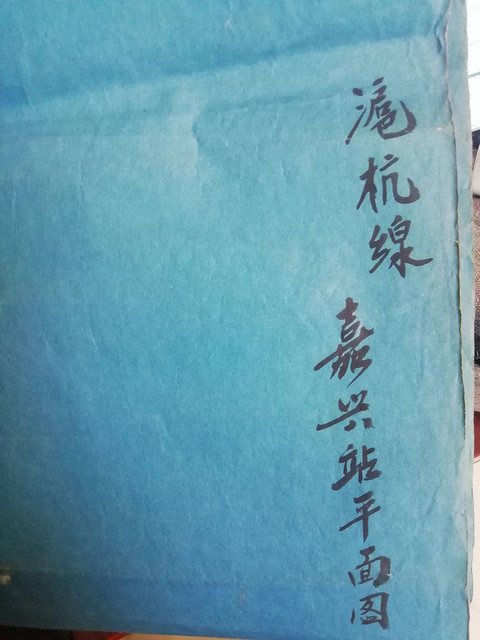 滬杭線
嘉兴站平面图